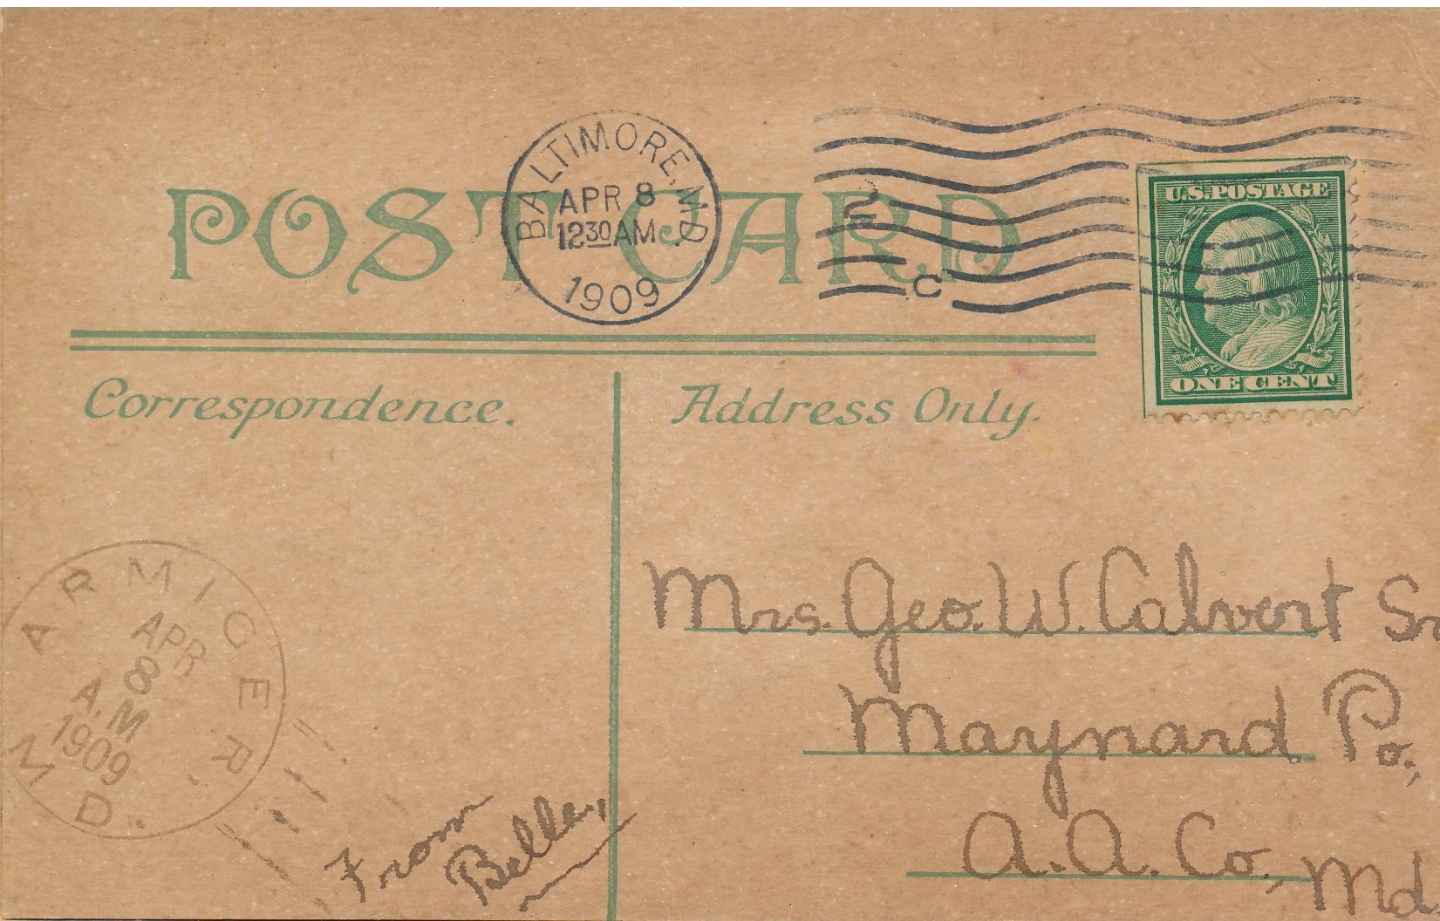 POST CARD
BALTIMORE, MD.
APR 8
12 30 AM
1909
2
C
U.S. POSTAGE
ONE CENT
Correspondence.
Address Only.
ARMIGER
MD.
APR
8
A.M
1909
Mrs. Geo. W. Calvert Sr
Maynard Po,
A.A. Co, Md.
From
Belle,